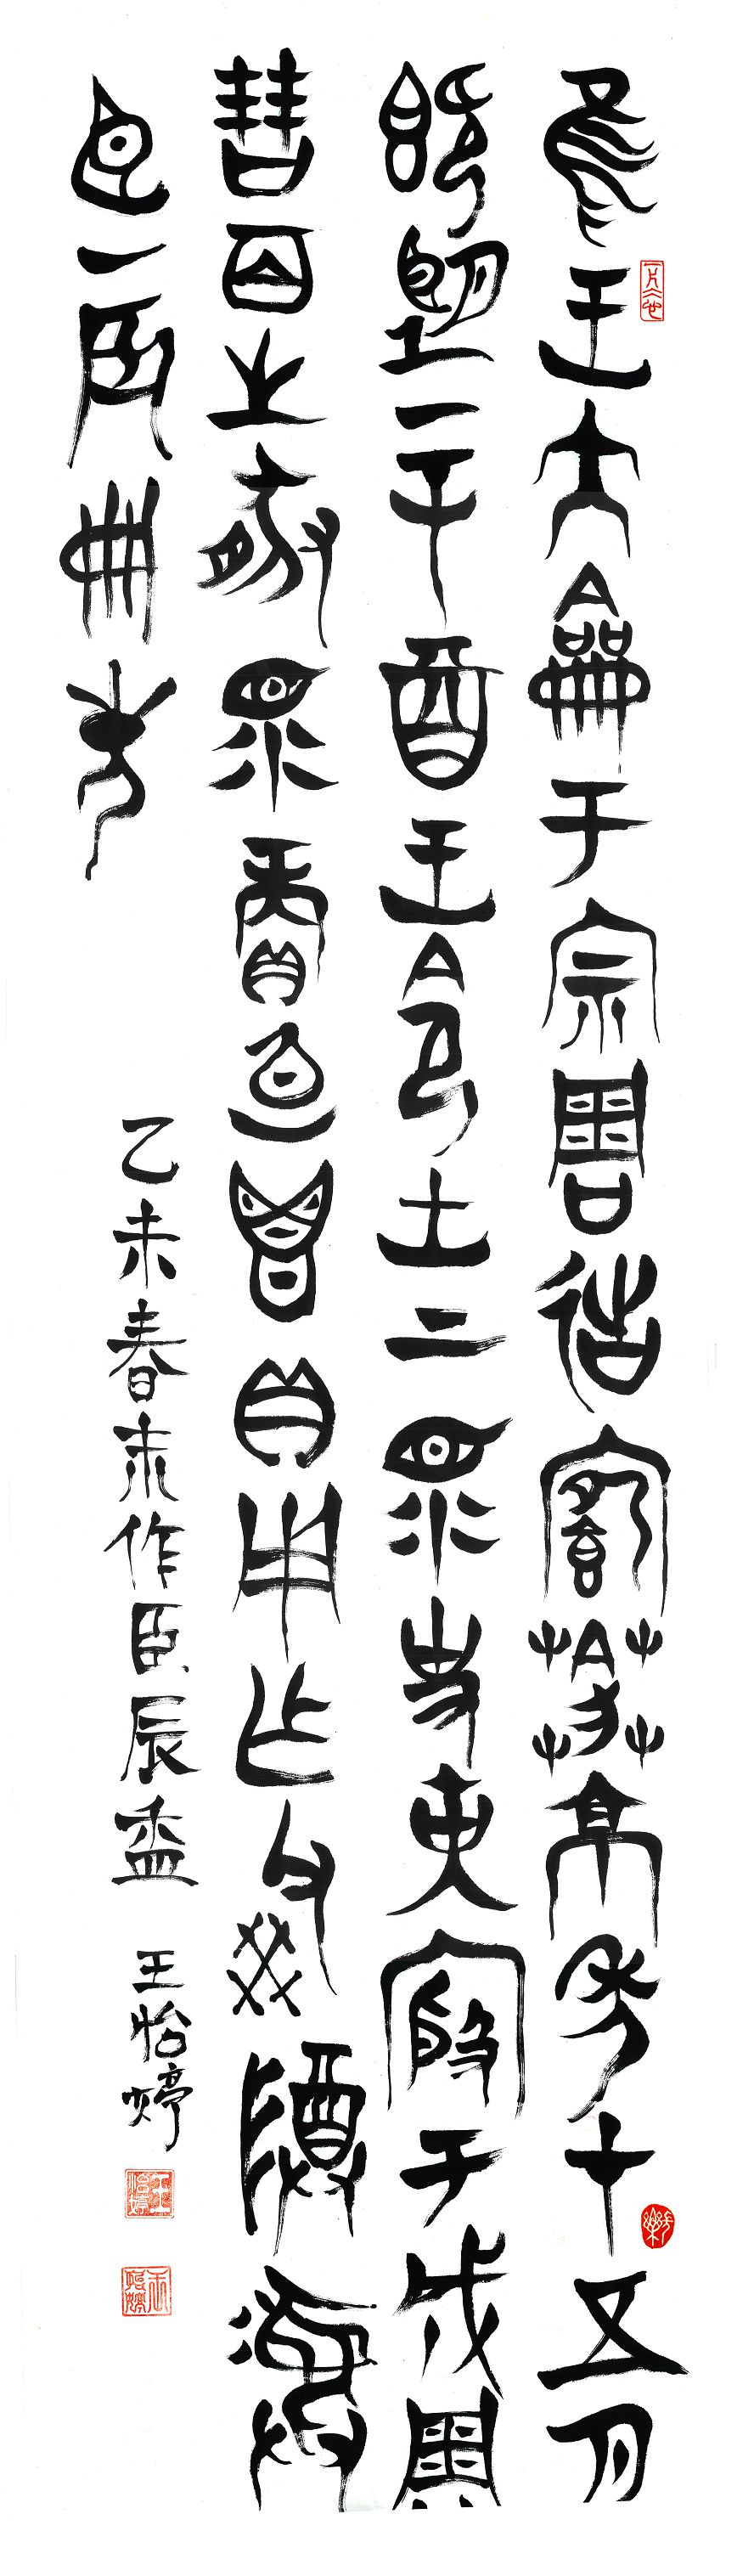 隹王大龠于宗周徣京年才五月
既望辛酉王令士上眔史寅殷于成周
百生豚眔賞卣鬯貝用乍父癸尊彝
臣辰冊
乙未春末作臣辰盉 王怡婷